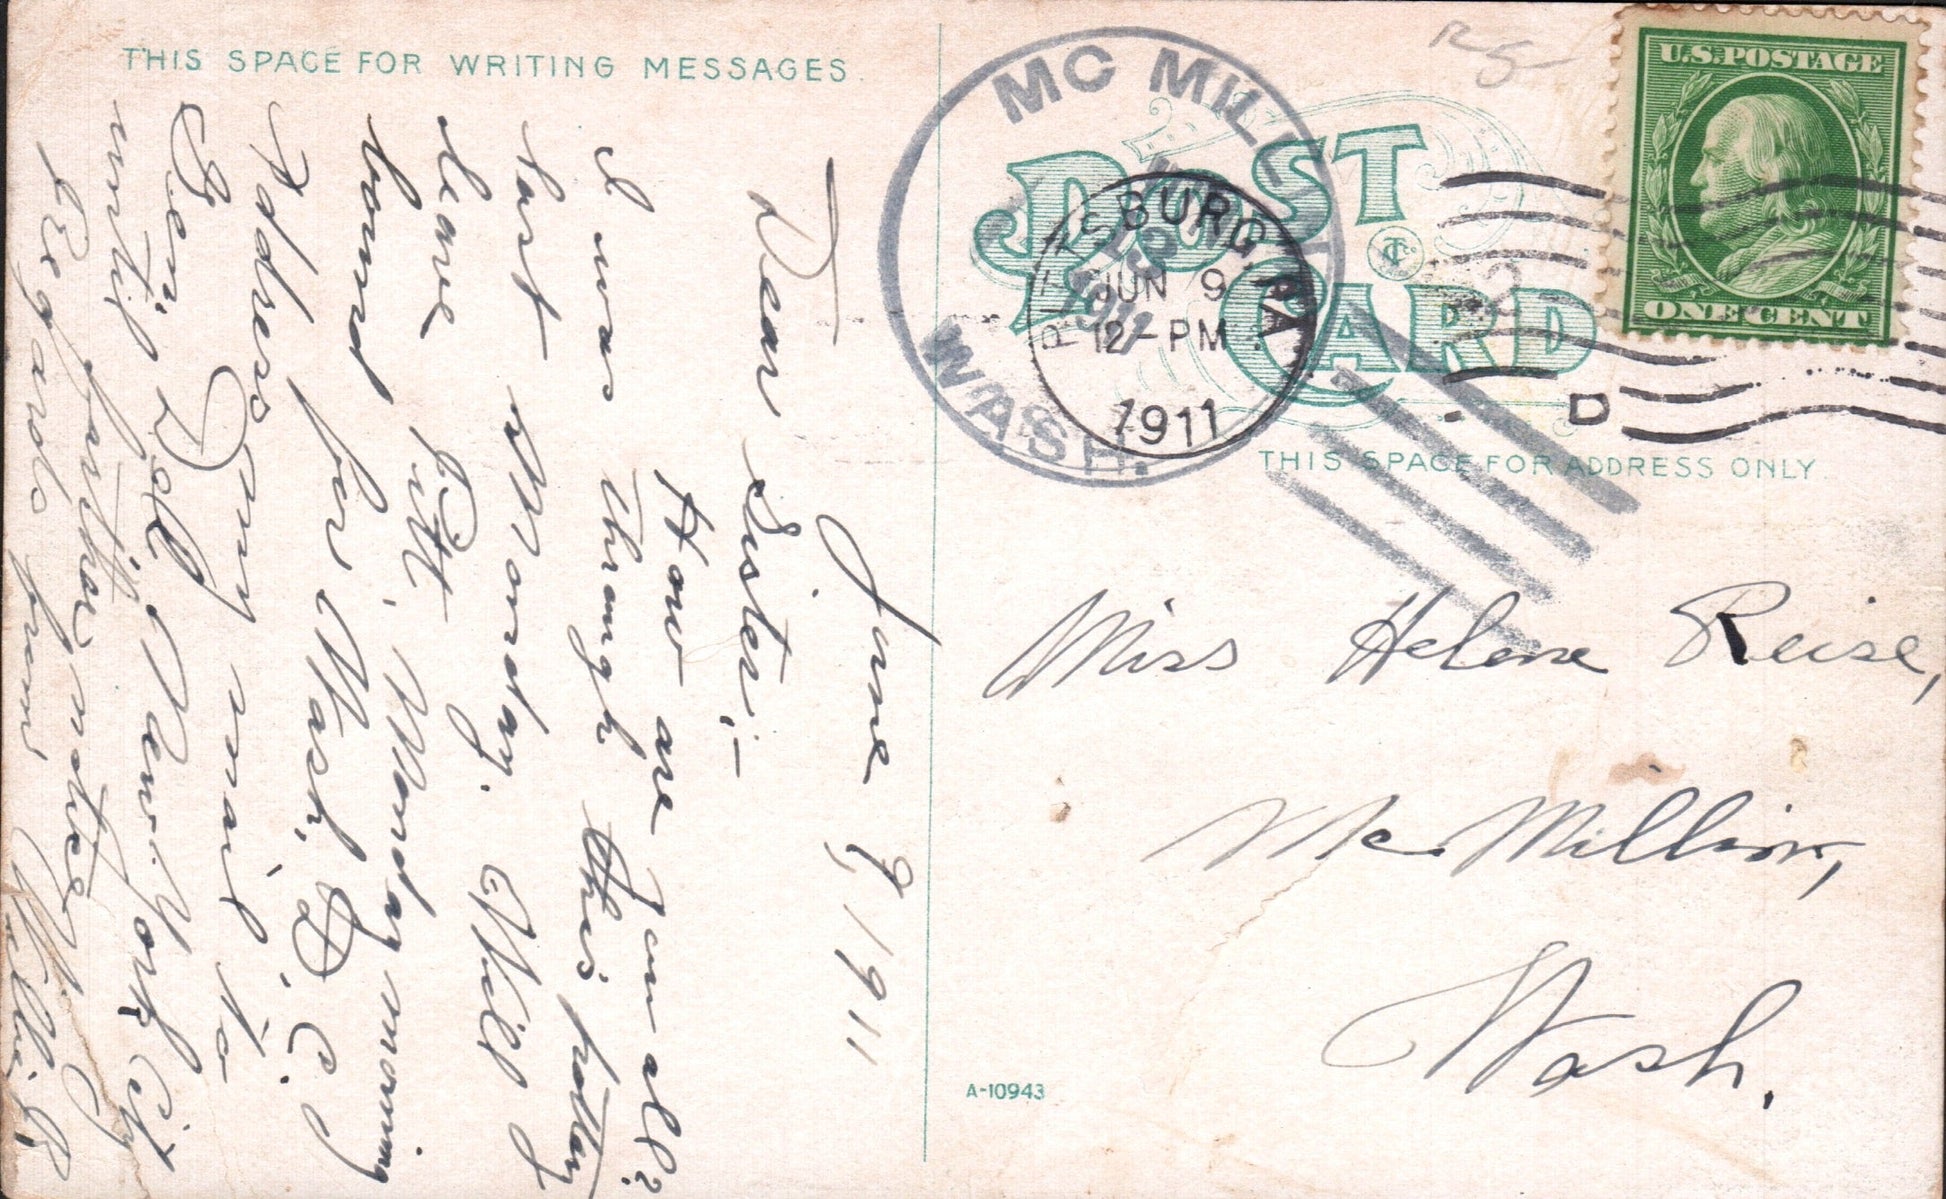 THIS SPACE FOR WRITING MESSAGES
June 9, 1911
Dear Sister:-
How are you all?
I was through this
last Monday. Will
leave Pitt. Monday morning
bound for Wash, D. C.
Address my mail to
Gen. Del. New York City
until farther notice.
Regards from Willie R
MC MILLIN
WASH.
1911
PITTSBURG, PA
JUN 9
12-PM
1911
POST CARD
D
U.S. POSTAGE
ONE CENT
THIS SPACE FOR ADDRESS ONLY
Miss Helene Reise,
Mc Millin,
Wash.
A-10943